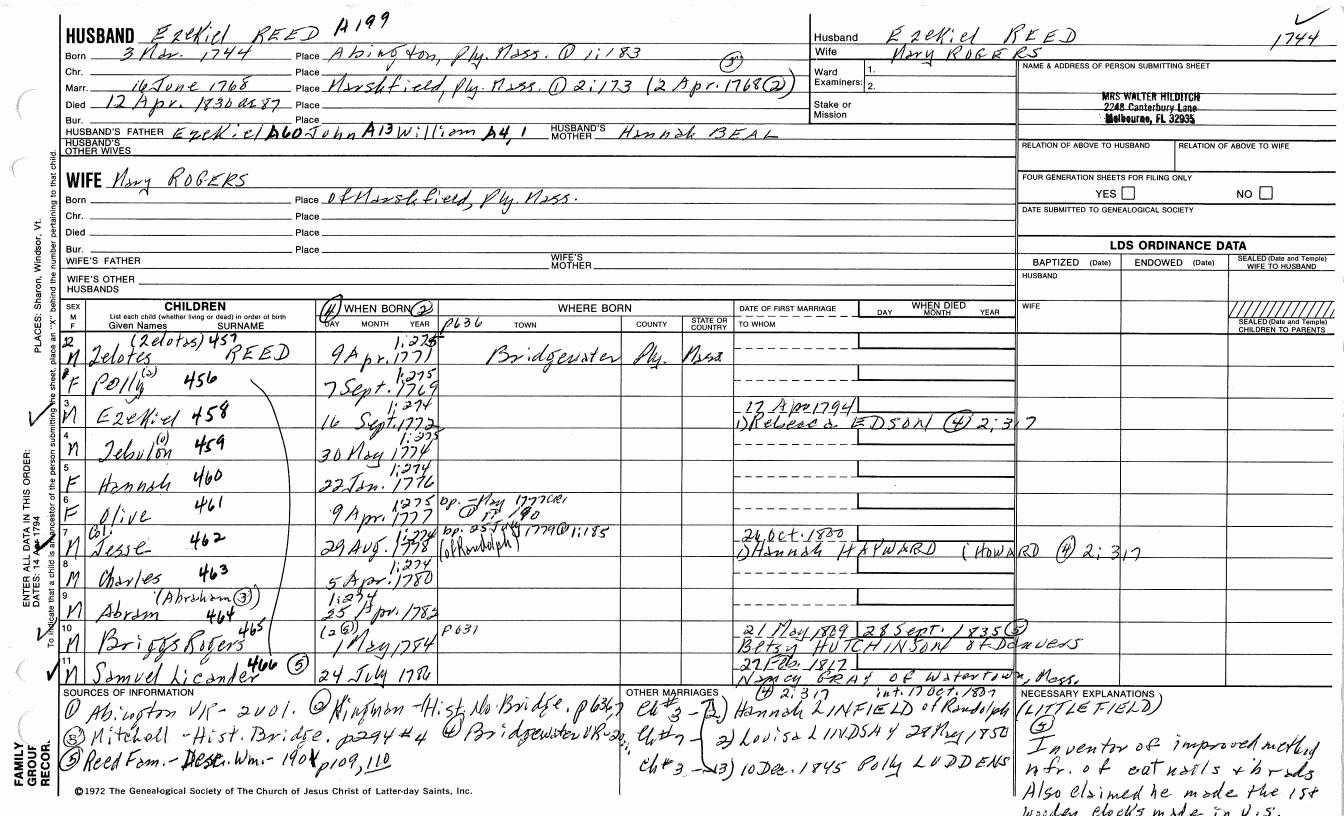 HUSBAND Ezekiel REED A199
Born 3 Mar. 1744 Place Abington, Ply. Mass. ① 1:183
Chr. Place
Marr. 16 June 1768 Place Marshfield, Ply. Mass. ① 2:173 (2 Apr. 1768 ②) ③
Died 12 Apr. 1830 ae 87 Place
Bur. Place
HUSBAND'S FATHER Ezekiel A60 John A13 William A4, 1 HUSBAND'S MOTHER Hannah BEAL
HUSBAND'S OTHER WIVES
Husband Ezekiel REED 1744
Wife Mary ROGERS
Ward Examiners: 1. 2.
Stake or Mission
NAME & ADDRESS OF PERSON SUBMITTING SHEET
MRS WALTER HILDITCH
2248 Canterbury Lane
Melbourne, FL 32935
RELATION OF ABOVE TO HUSBAND RELATION OF ABOVE TO WIFE
FOUR GENERATION SHEETS FOR FILING ONLY
YES NO
DATE SUBMITTED TO GENEALOGICAL SOCIETY
WIFE Mary ROGERS
Born Place of Marshfield, Ply. Mass.
Chr. Place
Died Place
Bur. Place
WIFE'S FATHER WIFE'S MOTHER
WIFE'S OTHER HUSBANDS
LDS ORDINANCE DATA
BAPTIZED (Date) ENDOWED (Date) SEALED (Date and Temple) WIFE TO HUSBAND
HUSBAND
WIFE
SEALED (Date and Temple) CHILDREN TO PARENTS
SEX M F CHILDREN
List each child (whether living or dead) in order of birth
Given Names SURNAME
④ WHEN BORN ②
DAY MONTH YEAR
WHERE BORN
p636 TOWN COUNTY STATE OR COUNTRY
DATE OF FIRST MARRIAGE
TO WHOM
WHEN DIED
DAY MONTH YEAR
2 (Zelotas) 457 1:275
M Zelotes REED 9 Apr. 1771 Bridgewater Ply. Mass
F Polly (2) 456 1:275 7 Sept. 1769
3 M Ezekiel 458 1:274 16 Sept. 1772 17 Apr 1794
1) Rebecca EDSON ④ 2:317
4 M Zebulon (o) 459 1:275 30 May 1774
5 F Hannah 460 1:274 22 Jan. 1776
6 F Olive 461 1:275 9 Apr. 1777 bp. - May 1777 CR1
7 Col. M Jesse 462 1:274 29 Aug. 1778 bp. 25 July 1779 ① 1:185
(of Randolph) 26 Oct. 1800
1) Hannah HAYWARD (HOWARD ④ 2:317
8 M Charles 463 1:274 5 Apr. 1780
9 M Abram (Abraham ③) 464 1:274 25 Apr. 1782
10 M Briggs Rogers 465 (2 ⑤) 1 May 1784 p631 21 May 1809 28 Sept. 1835 ⑤
Betsy HUTCHINSON of Danvers
11 M Samuel Licander 466 ⑤ 24 July 1786 27 Feb. 1817
Nancy GRAY of Watertown, Mass.
SOURCES OF INFORMATION
① Abington VR - 2 vol. ② Kingman - Hist. No. Bridge. p636,7
③ Mitchell - Hist. Bridge. p294 #4 ④ Bridgewater VR - 2v.
⑤ Reed Fam. - Desc. Wm. - 1901 p109, 110
OTHER MARRIAGES ④ 2:317 int. 17 Oct. 1807
Ch #3 - 2) Hannah LINFIELD of Randolph (LITTLEFIELD)
Ch #7 - 2) Louisa LINDSAY 28 May 1850
Ch #3 - 3) 10 Dec. 1845 Polly LUDDENS
NECESSARY EXPLANATIONS
⑤
Inventor of improved method
mfr. of cut nails & brads
Also claimed he made the 1st
wooden clocks made in U.S.
©1972 The Genealogical Society of The Church of Jesus Christ of Latter-day Saints, Inc.
PLACES: Sharon, Windsor, Vt.
ENTER ALL DATA IN THIS ORDER:
DATES: 14 Apr 1794
To indicate that a child is an ancestor of the person submitting the sheet, place an "X" behind the number pertaining to that child.
FAMILY
GROUP
RECOR.